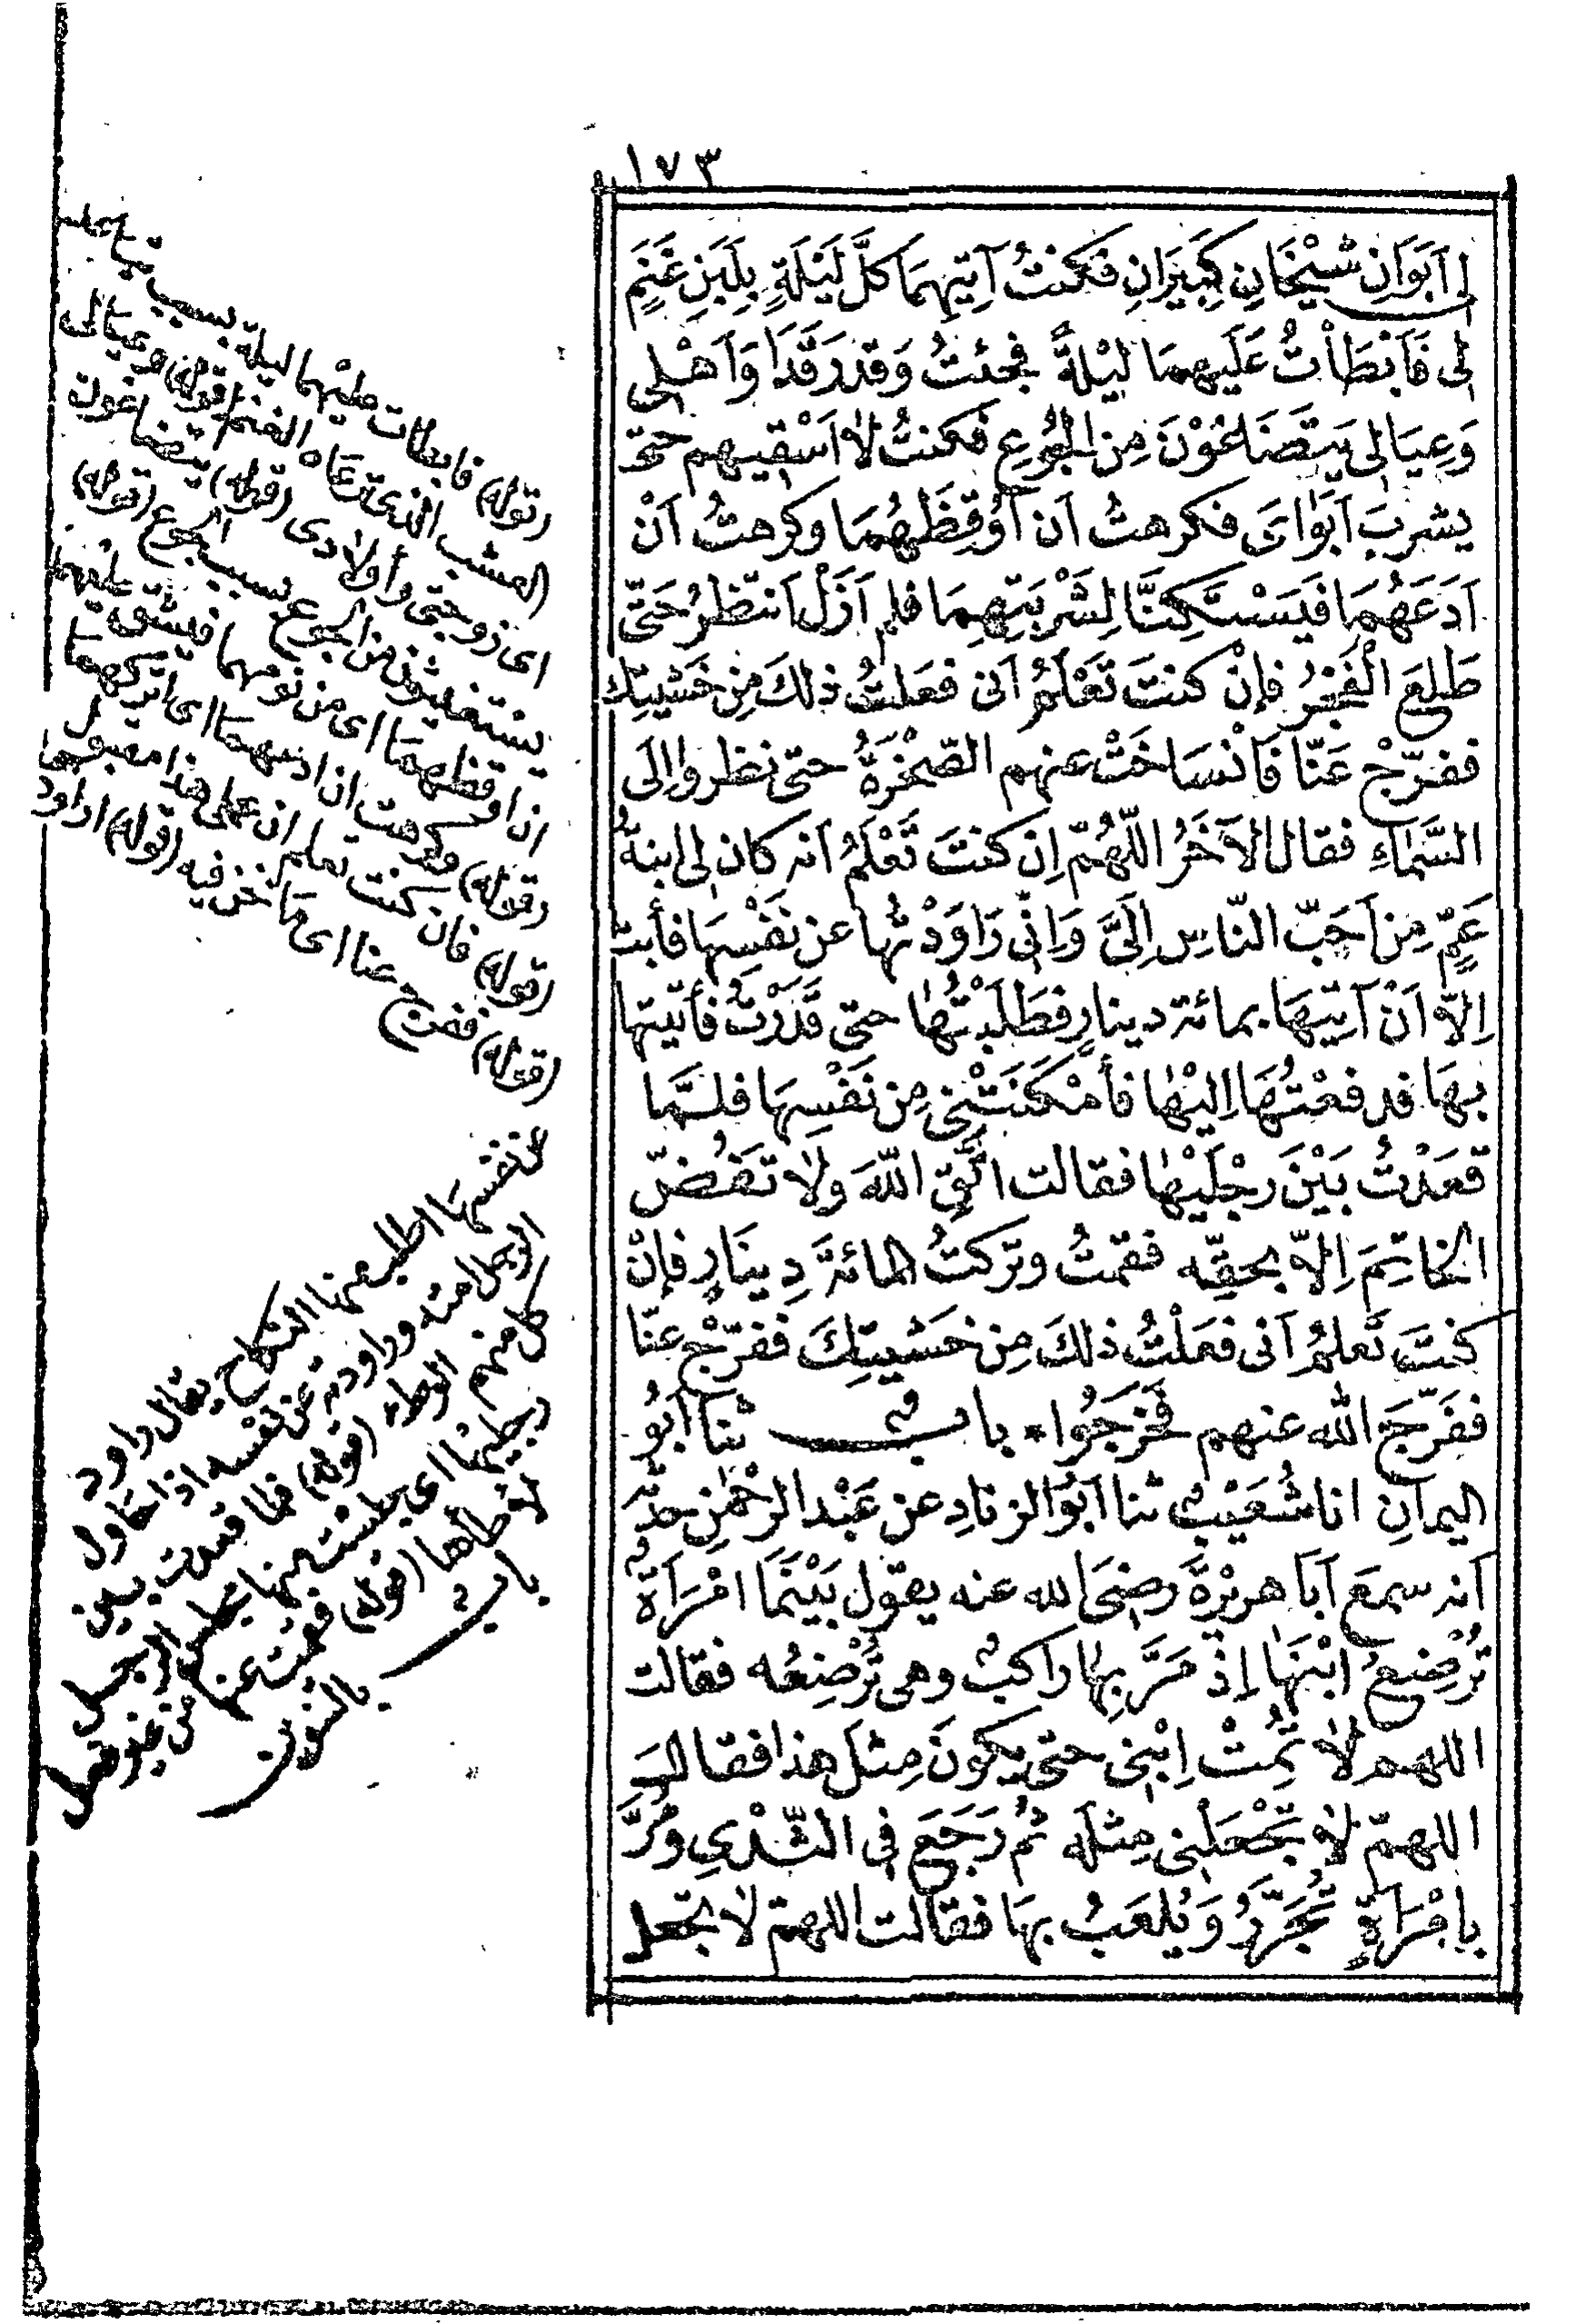 ١٧٣
لى اَبَوَانِ شَيْخَانِ كَبِيرَانِ فكنتُ آتِيهِمَا كلَّ لَيْلَةٍ بِلَبَنِ غَنَمٍ
لى فَاَبْطَأْتُ عَلَيهِمَا لَيْلةً فجئتُ وَقد رَقَدَا وَاَهْلِى
وَعِيَالِى يَتَضَاغَوْنَ مِنَ الجُوعِ فكنتُ لا اَسْقِيهم حتى
يشربَ اَبَوَاىَ فكرهتُ اَن اُوقِظَهُمَا وكرهتُ اَنْ
اَدَعَهُمَا فَيَسْتَكِنَّا لِشَرْبَتِهِمَا فلم اَزَلْ اَنتظرُ حَتّى
طَلعَ الْفَجْرُ فإنْ كنتَ تَعْلَمُ اَنى فعَلتُ ذلكَ مِن خَشْيتِكَ
ففرّجْ عَنّا فَاَنْسَاخَتْ عنهم الصّخْرَةُ حتى نظروا الَى
السَّمَاءِ فقال الآخَرُ اللّهُمّ اِن كنتَ تَعْلَمُ اَنه كان لى ابنةُ
عَمٍّ مِن اَحَبّ النّاسِ اِلَىَّ وَاِنّى رَاوَدْتُها عن نَفْسِهَا فأبت
اِلاّ اَنْ آتِيَهَا بمائة دينارٍ فطَلَبْتُهَا حتى قَدَرْتُ فأتيتها
بهَا فدفعْتُهَا اِليْها فأمْكَنَتْنِى مِن نَفْسِهَا فلمّا
قعَدْتُ بَيْنَ رجْلَيْها فقالت اتّقِ اللّهَ ولا تَفُضّ
الخَاتِمَ اِلاّ بحقِّه فقمتُ وتَركتُ المائةَ دِينَارٍ فإنْ
كنتَ تَعلمُ اَنى فعَلْتُ ذلكَ مِن خَشْيتِكَ ففرّجْ عنّا
ففَرّجَ الله عنهم فَخَرَجُوا * بابٌ ثنا اَبُو
اليمانِ انا شُعَيْبٌ ثنا اَبُو الزنادِ عن عَبْد الرّحْمٰنِ حدّثه
اَنه سمعَ اَبَا هريْرةَ رضىَ الله عنه يقول بَيْنَمَا امْرَاَةٌ
تُرْضِعُ ابْنَهَا اِذْ مَرَّ بِهَا راكبٌ وهى تُرْضِعُه فقالت
اللهم لا تُمِتْ اِبْنِى حتى يكونَ مِثلَ هَذا فقال
اللهمّ لا تَجْعَلْنِى مِثلَه ثُمّ رَجَعَ فى الثّدْىِ ومُرَّ
بِامْرَاَةٍ تُجَرَّرُ وَيُلعَبُ بِهَا فقالت اللهمّ لا تجعل
(قوله) فابطأت عليْهما ليلة بسبب تباعد
العشب الذى ترعاه الغنم (قوله) وعيالى
اى زوجتى وأولادى (قوله) يتضاغون
يستغيثون من الجوع بسبب الجوع (قوله)
ان اوقظهما اى من نومهما فيشق عليهما
(قوله) وكرهت ان ادعهما اى اتركهما
(قوله) فان كنت تعلم ان عملى هذا مقبول
(قوله) ففرج عنا اى مما نحن فيه (قوله) راود
عن نفسها اى اطلب منها النكاح يقال راود
الرجل امرأته وراودته عن نفسه اذا حاول
كل منهم الوطء (قوله) فلما قعدت بين
رجليها اى جلست منها مجلس الرجل
لأطأها (قوله) فقمت عنها من غير فعل
باب بالتنوين